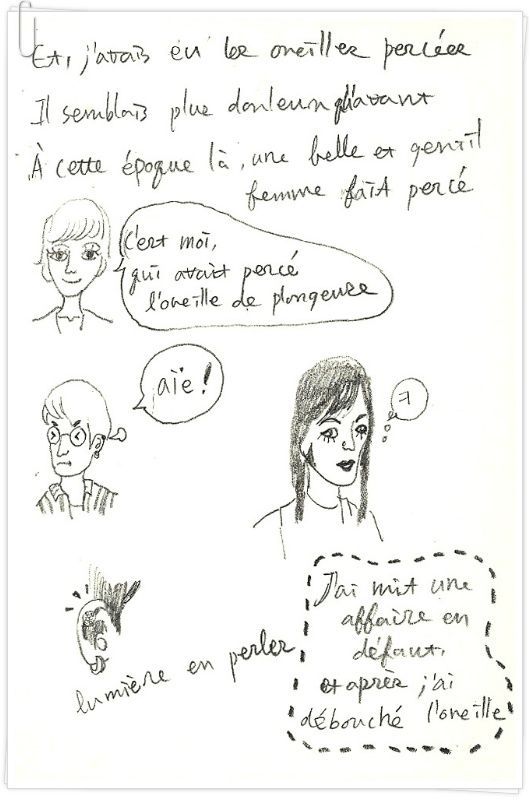 Et, j'avais eu les oreilles percées
Il semblais plus douleur qu'avant
À cette époque là, une belle et gentil
femme fait percé
C'est moi,
qui avait percé
l'oreille de plongeuse
aïe !
lumière en perler
J'ai mit une
affaire en
défaut,
et après j'ai
débouché l'oreille